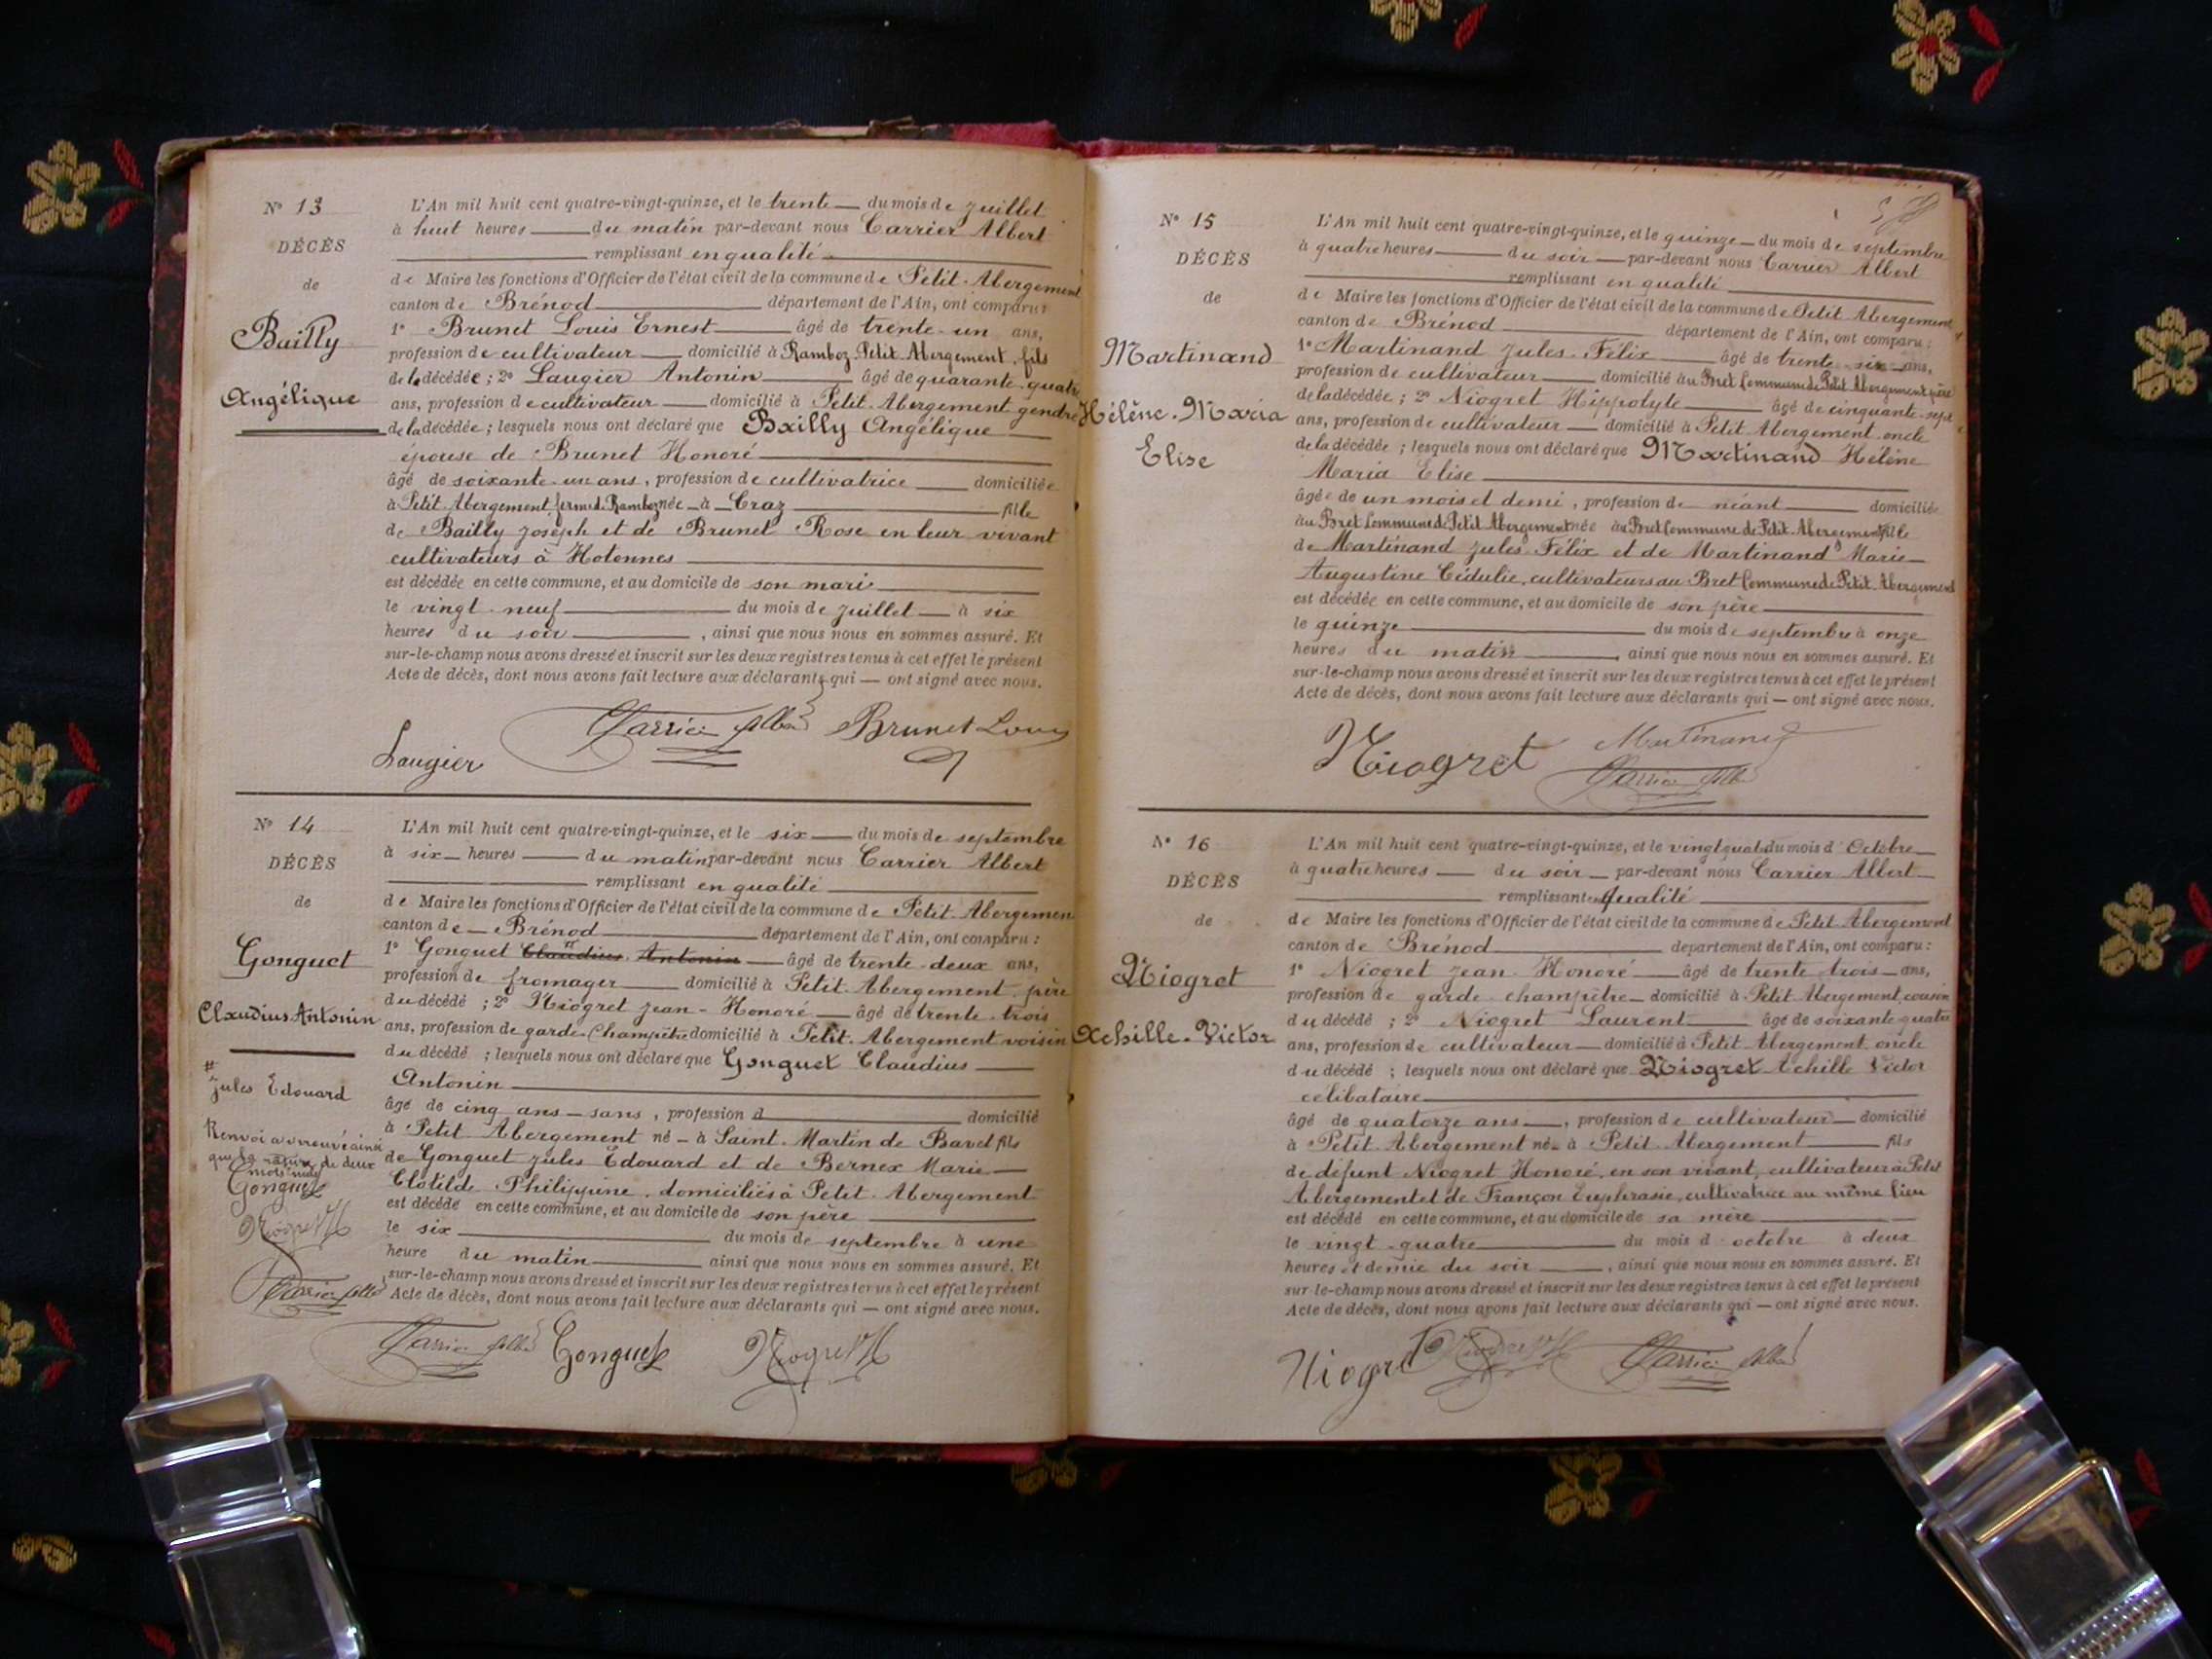 N° 13
DÉCÈS
de
Bailly
Angélique
L'An mil huit cent quatre-vingt-quinze, et le trente du mois de juillet
à huit heures du matin par-devant nous Carrier Albert
remplissant en qualité
de Maire les fonctions d'Officier de l'état civil de la commune de Petit-Abergement
canton de Brénod département de l'Ain, ont comparu :
1° Brunet Louis Ernest âgé de trente-un ans,
profession de cultivateur domicilié à Ramboz Petit-Abergement, fils
de la décédée ; 2° Laugier Antonin âgé de quarante-quatre
ans, profession de cultivateur domicilié à Petit-Abergement gendre
de la décédée ; lesquels nous ont déclaré que Bailly Angélique
épouse de Brunet Honoré
âgé de soixante-un ans, profession de cultivatrice domiciliée
à Petit-Abergement, ferme de Ramboz née à Craz fille
de Bailly Joseph et de Brunet Rose en leur vivant
cultivateurs à Hotonnes
est décédée en cette commune, et au domicile de son mari
le vingt-neuf du mois de juillet à six
heures du soir, ainsi que nous nous en sommes assuré. Et
sur-le-champ nous avons dressé et inscrit sur les deux registres tenus à cet effet le présent
Acte de décès, dont nous avons fait lecture aux déclarants qui — ont signé avec nous.
Laugier Carrier Albert Brunet Louis
N° 14
DÉCÈS
de
Gonguet
Claudius Antonin
# Jules Edouard
Renvoi approuvé ainsi
que la rature de deux
mots nuls
Gonguet
Niogret JH
Carrier Albert
L'An mil huit cent quatre-vingt-quinze, et le six du mois de septembre
à six heures du matin par-devant nous Carrier Albert
remplissant en qualité
de Maire les fonctions d'Officier de l'état civil de la commune de Petit-Abergement
canton de Brénod département de l'Ain, ont comparu :
1° Gonguet # Claudius Antonin âgé de trente-deux ans,
profession de fromager domicilié à Petit-Abergement père
du décédé ; 2° Niogret Jean-Honoré âgé de trente-trois
ans, profession de garde-champêtre domicilié à Petit-Abergement voisin
du décédé ; lesquels nous ont déclaré que Gonguet Claudius
Antonin
âgé de cinq ans — sans, profession d domicilié
à Petit Abergement né à Saint-Martin de Bavel fils
de Gonguet Jules Edouard et de Bernex Marie
Clotilde Philippine, domiciliés à Petit-Abergement
est décédé en cette commune, et au domicile de son père
le six du mois de septembre à une
heure du matin ainsi que nous nous en sommes assuré. Et
sur-le-champ nous avons dressé et inscrit sur les deux registres tenus à cet effet le présent
Acte de décès, dont nous avons fait lecture aux déclarants qui — ont signé avec nous.
Carrier Albert Gonguet Niogret JH
N° 15
DÉCÈS
de
Martinand
Hélène-Maria
Elise
L'An mil huit cent quatre-vingt-quinze, et le quinze du mois de septembre
à quatre heures du soir par-devant nous Carrier Albert
remplissant en qualité
de Maire les fonctions d'Officier de l'état civil de la commune de Petit Abergement
canton de Brénod département de l'Ain, ont comparu :
1° Martinand Jules-Félix âgé de trente-six ans,
profession de cultivateur domicilié au Bret Commune de Petit Abergement père
de la décédée ; 2° Niogret Hippolyte âgé de cinquante-sept
ans, profession de cultivateur domicilié à Petit Abergement oncle
de la décédée ; lesquels nous ont déclaré que Martinand Hélène
Maria Elise
âgée de un mois et demi, profession de néant domiciliée
au Bret Commune de Petit Abergement née au Bret Commune de Petit-Abergement fille
de Martinand Jules-Félix et de Martinand Marie
Augustine Cédulie, cultivateurs au Bret Commune de Petit-Abergement
est décédée en cette commune, et au domicile de son père
le quinze du mois de septembre à onze
heures du matin, ainsi que nous nous en sommes assuré. Et
sur-le-champ nous avons dressé et inscrit sur les deux registres tenus à cet effet le présent
Acte de décès, dont nous avons fait lecture aux déclarants qui — ont signé avec nous.
Niogret Martinand
Carrier Albert
N° 16
DÉCÈS
de
Niogret
Achille-Victor
L'An mil huit cent quatre-vingt-quinze, et le vingt quat. du mois d'Octobre
à quatre heures du soir par-devant nous Carrier Albert
remplissant en qualité
de Maire les fonctions d'Officier de l'état civil de la commune de Petit-Abergement
canton de Brénod département de l'Ain, ont comparu :
1° Niogret Jean-Honoré âgé de trente-trois ans,
profession de garde-champêtre domicilié à Petit-Abergement, cousin
du décédé ; 2° Niogret Laurent âgé de soixante quatre
ans, profession de cultivateur domicilié à Petit-Abergement oncle
du décédé ; lesquels nous ont déclaré que Niogret Achille Victor
célibataire
âgé de quatorze ans, profession de cultivateur domicilié
à Petit Abergement né à Petit-Abergement fils
de défunt Niogret Honoré, en son vivant, cultivateur à Petit
Abergement et de Françon Euphrasie, cultivatrice au même lieu
est décédé en cette commune, et au domicile de sa mère
le vingt-quatre du mois d'octobre à deux
heures et demie du soir, ainsi que nous nous en sommes assuré. Et
sur-le-champ nous avons dressé et inscrit sur les deux registres tenus à cet effet le présent
Acte de décès, dont nous avons fait lecture aux déclarants qui — ont signé avec nous.
Niogret Niogret JH Carrier Albert